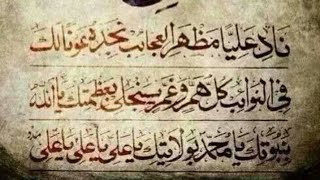 ناد عليا مظهر العجائب تجده عونا لك
في النوائب كل هم وغم سينجلي بعظمتك يا الله
بنبوتك يا محمد بولايتك يا علي يا علي يا علي